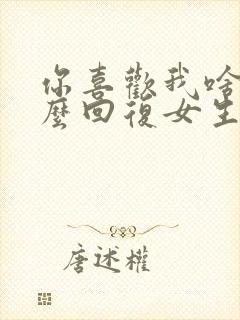 你喜歡我啥
麼回復女生
唐述權